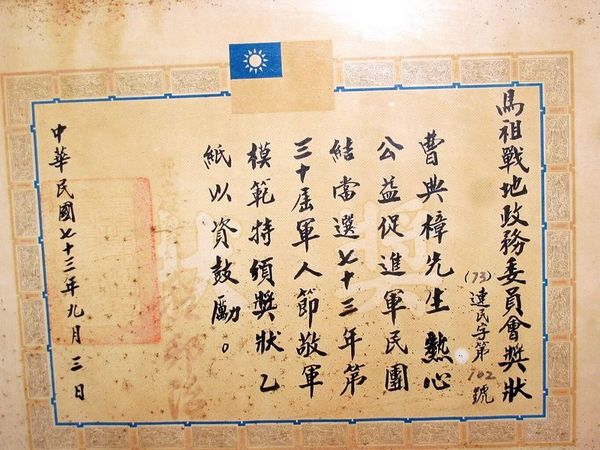 馬祖戰地政務委員會獎狀
(73)連民字第102號
曹典樟先生熱心
公益促進軍民團
結當選七十三年第
三十屆軍人節敬軍
模範特頒獎狀乙
紙以資鼓勵。
中華民國七十三年九月三日